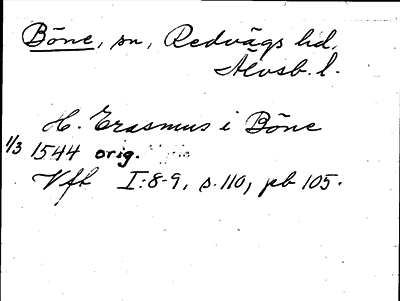 Böne, sn, Redvägs hd,
Älvsb. l.
H. Erasmus i Böne
1/3 1544 orig.
Vfh I:8-9, s. 110, pb 105.